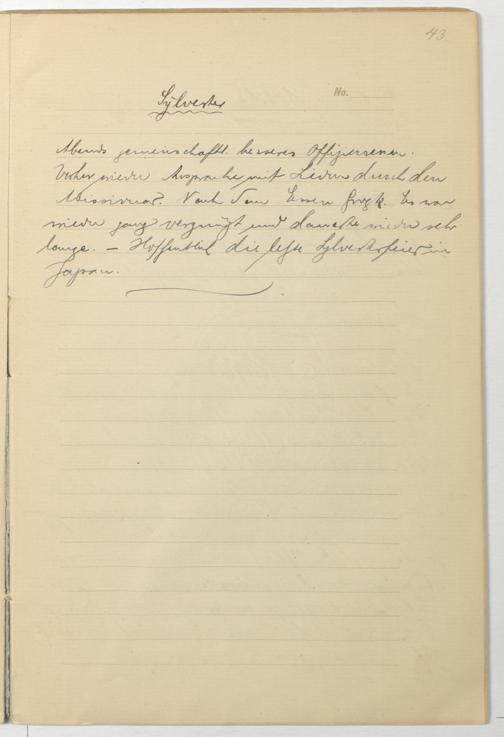 43
No.
Sylvester
Abends gemeinschaftl. besseres Offiziersessen.
Vorher wieder Ansprache mit Liedern durch den
Missionar. Nach dem Essen Grogk. Es war
wieder ganz vergnügt und dauerte wieder sehr
lange. – Hoffentlich die letzte Sylvesterfeier in
Japan.